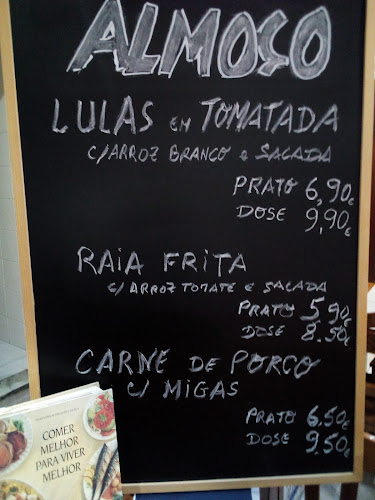 ALMOÇO
LULAS EM TOMATADA
C/ARROZ BRANCO E SALADA
PRATO 6,90€
DOSE 9,90€
RAIA FRITA
C/ARROZ TOMATE E SALADA
PRATO 5.90€
DOSE 8.50€
CARNE DE PORCO
C/ MIGAS
PRATO 6.50€
DOSE 9.50€
COMER
MELHOR
PARA VIVER
MELHOR